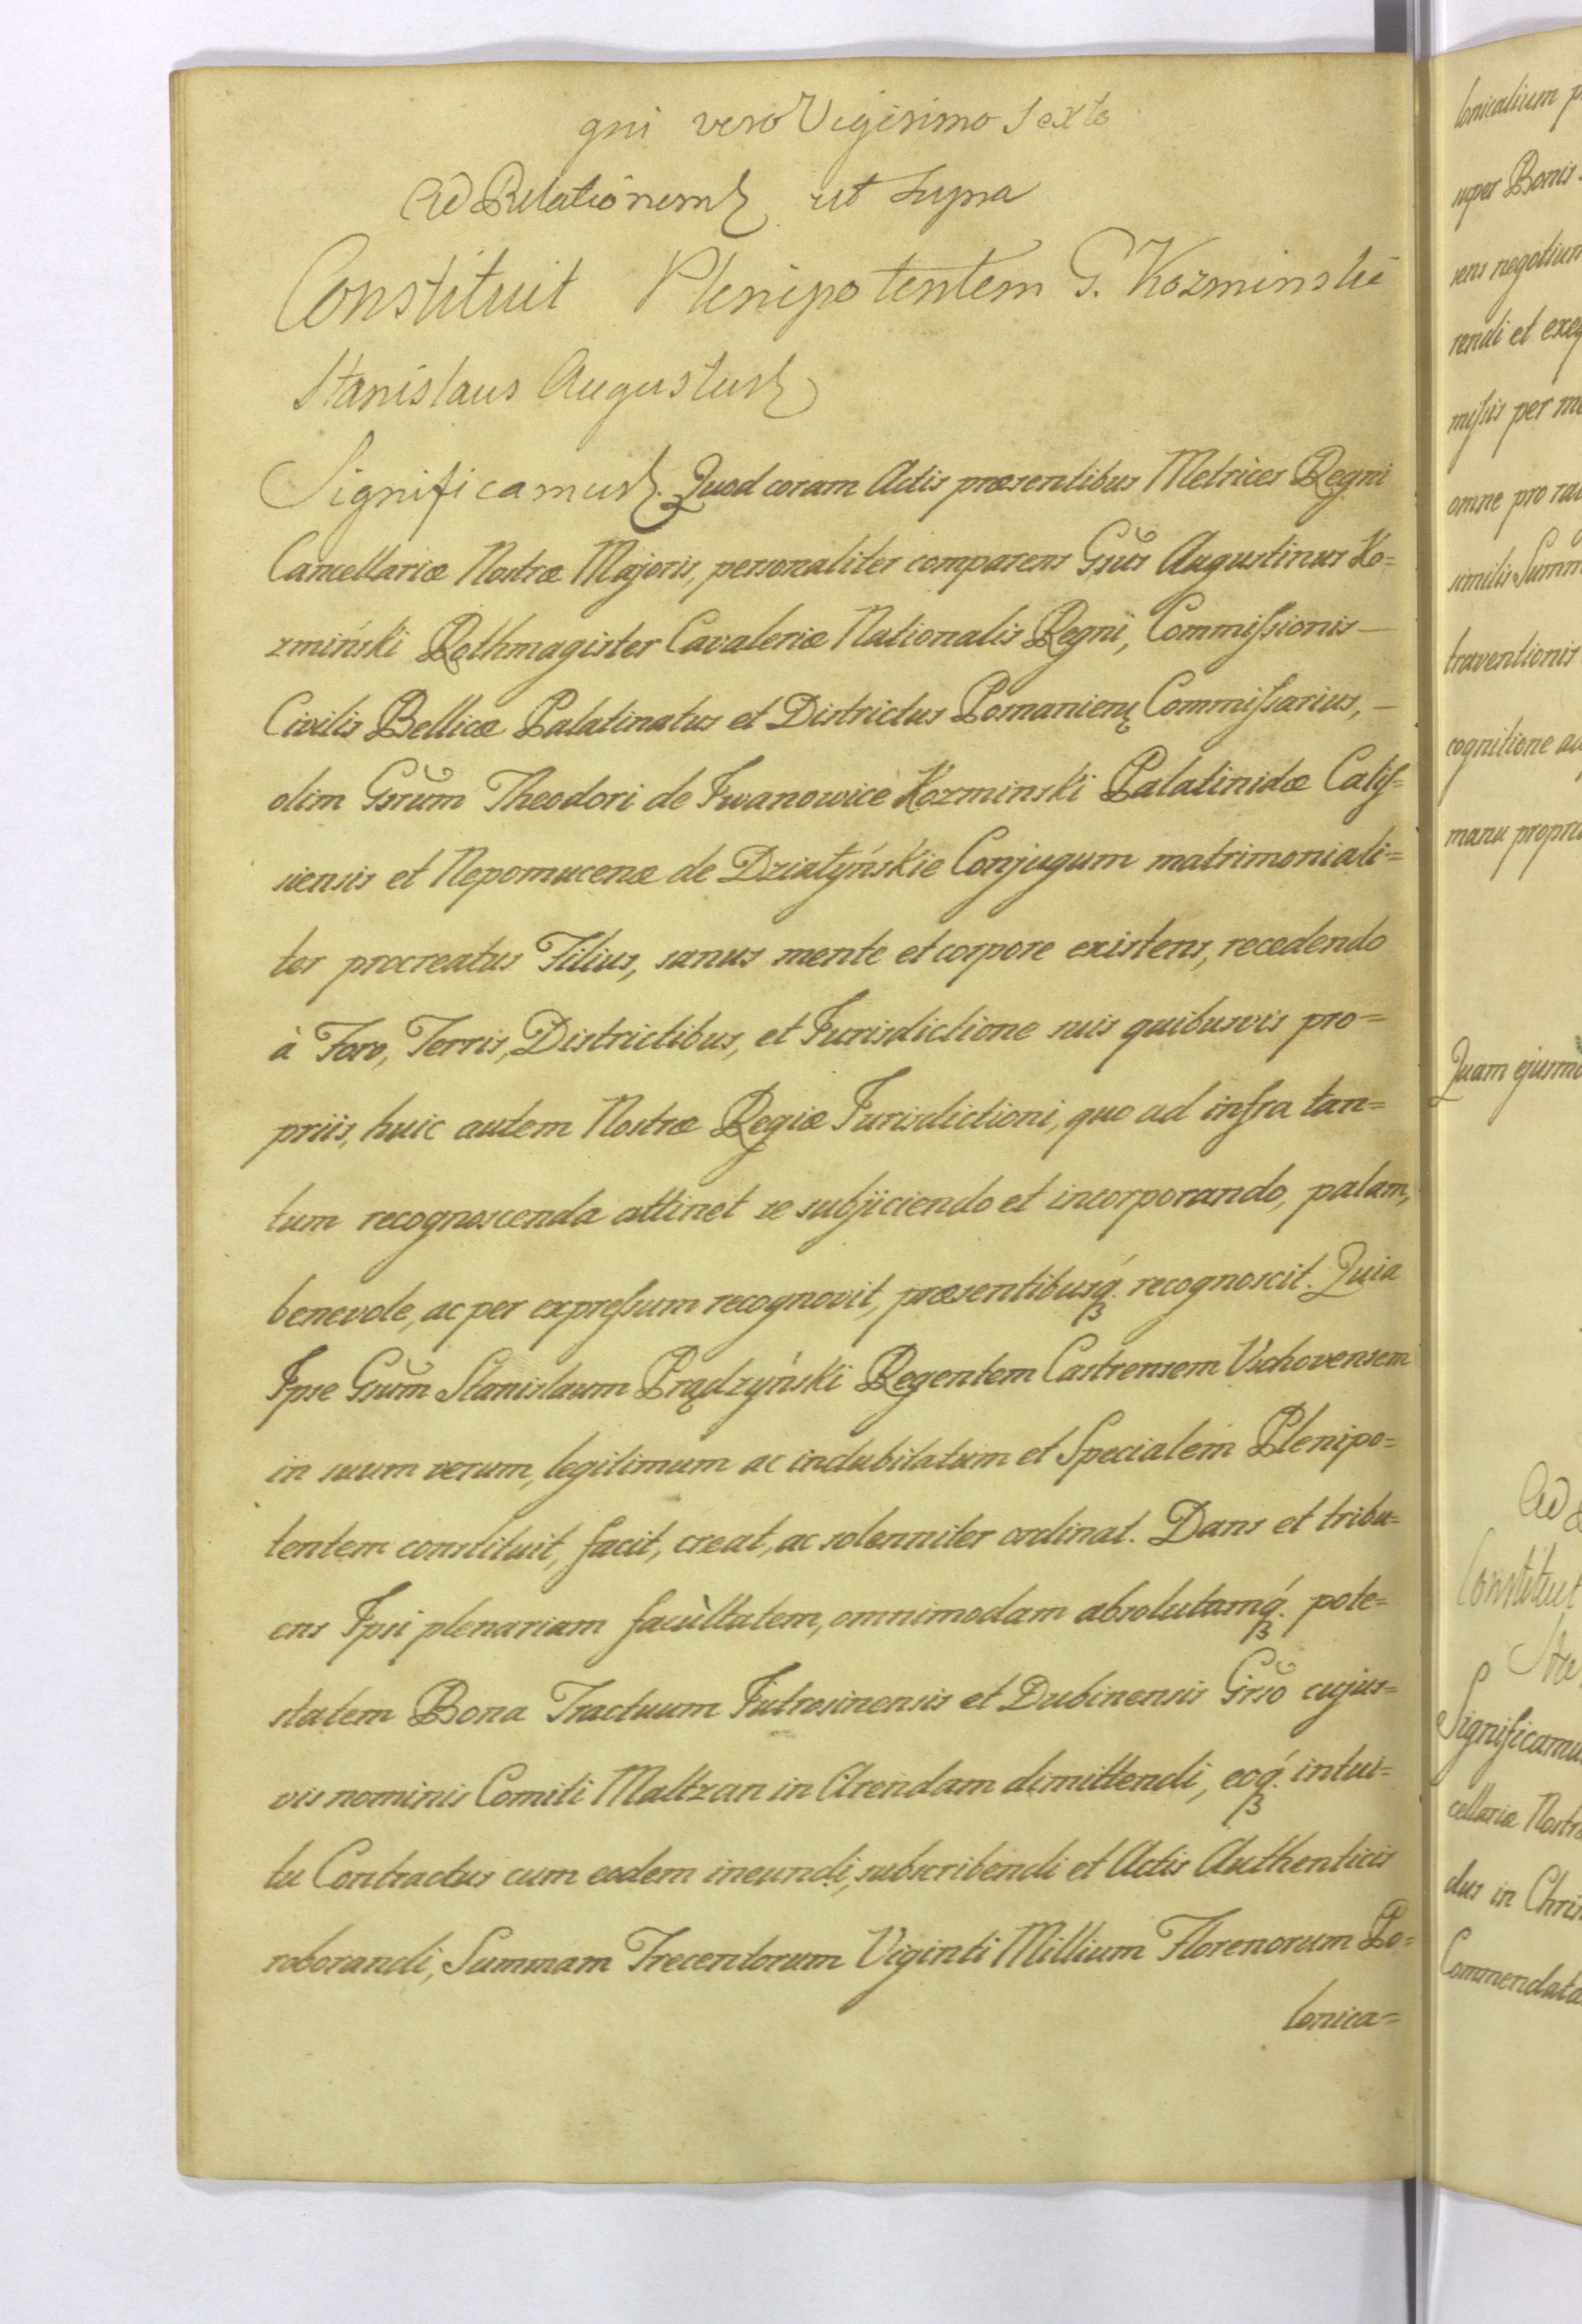 gni vero Vigesimo Sexto
Ad Relationem ut Supra
Constituit Plenipotentem G. Kozminski
Stanislaus Augustus
Significamus. Quod coram Actis præsentibus Metrices Regni
Cancellariæ Nostræ Majoris, personaliter comparens Gsus Augustinus Ko=
zmiński Rothmagister Cavaleriæ Nationalis Regni, Commiſsionis —
Civilis Bellicæ Palatinatus et Districtus Posnanien Commiſsarius, —
olim Gsrum Theodori de Iwanowice Kozminski Palatinidæ Caliſ=
siensis et Nepomucenæ de Działyńskie Conjugum matrimoniali=
ter procreatus Filius, sanus mente et corpore existens, recedendo
à Foro, Terris, Districtibus, et Jurisdictione suis quibusvis pro=
priis, huic autem Nostræ Regiæ Jurisdictioni, quo ad infra tan=
tum recognoscenda attinet se subjiciendo et incorporando, palam,
benevole, ac per expreſsum recognovit, præsentibusq́. recognoscit. Quia
Ipse Gsum Stanislaum Prądzyński Regentem Castrensem Vschovensem
in suum verum, legitimum ac indubitatum et Specialem Plenipo=
tentem constituit, facit, creat, ac solenniter ordinat. Dans et tribu=
ens Ipsi plenariam facùltatem, omnimodam absolutamq́. pote=
statem Bona Tractuum Jutrosinensis et Dubinensis Grso cujus=
vis nominis Comiti Maltzan in Arendam dimittendi, eoq́. intui=
tu Contractus cum eodem ineundi, subscribendi et Actis Authenticis
roborandi, Summam Trecentorum Viginti Millium Florenorum Po=
lonica=
lonicalium
super Bonis
sens negotium
rendi et
miſsis per
omne pro
similis
traventionis
cognitione
manu
Quam
Ad
Constituit
Significamus
cellariæ
dus in